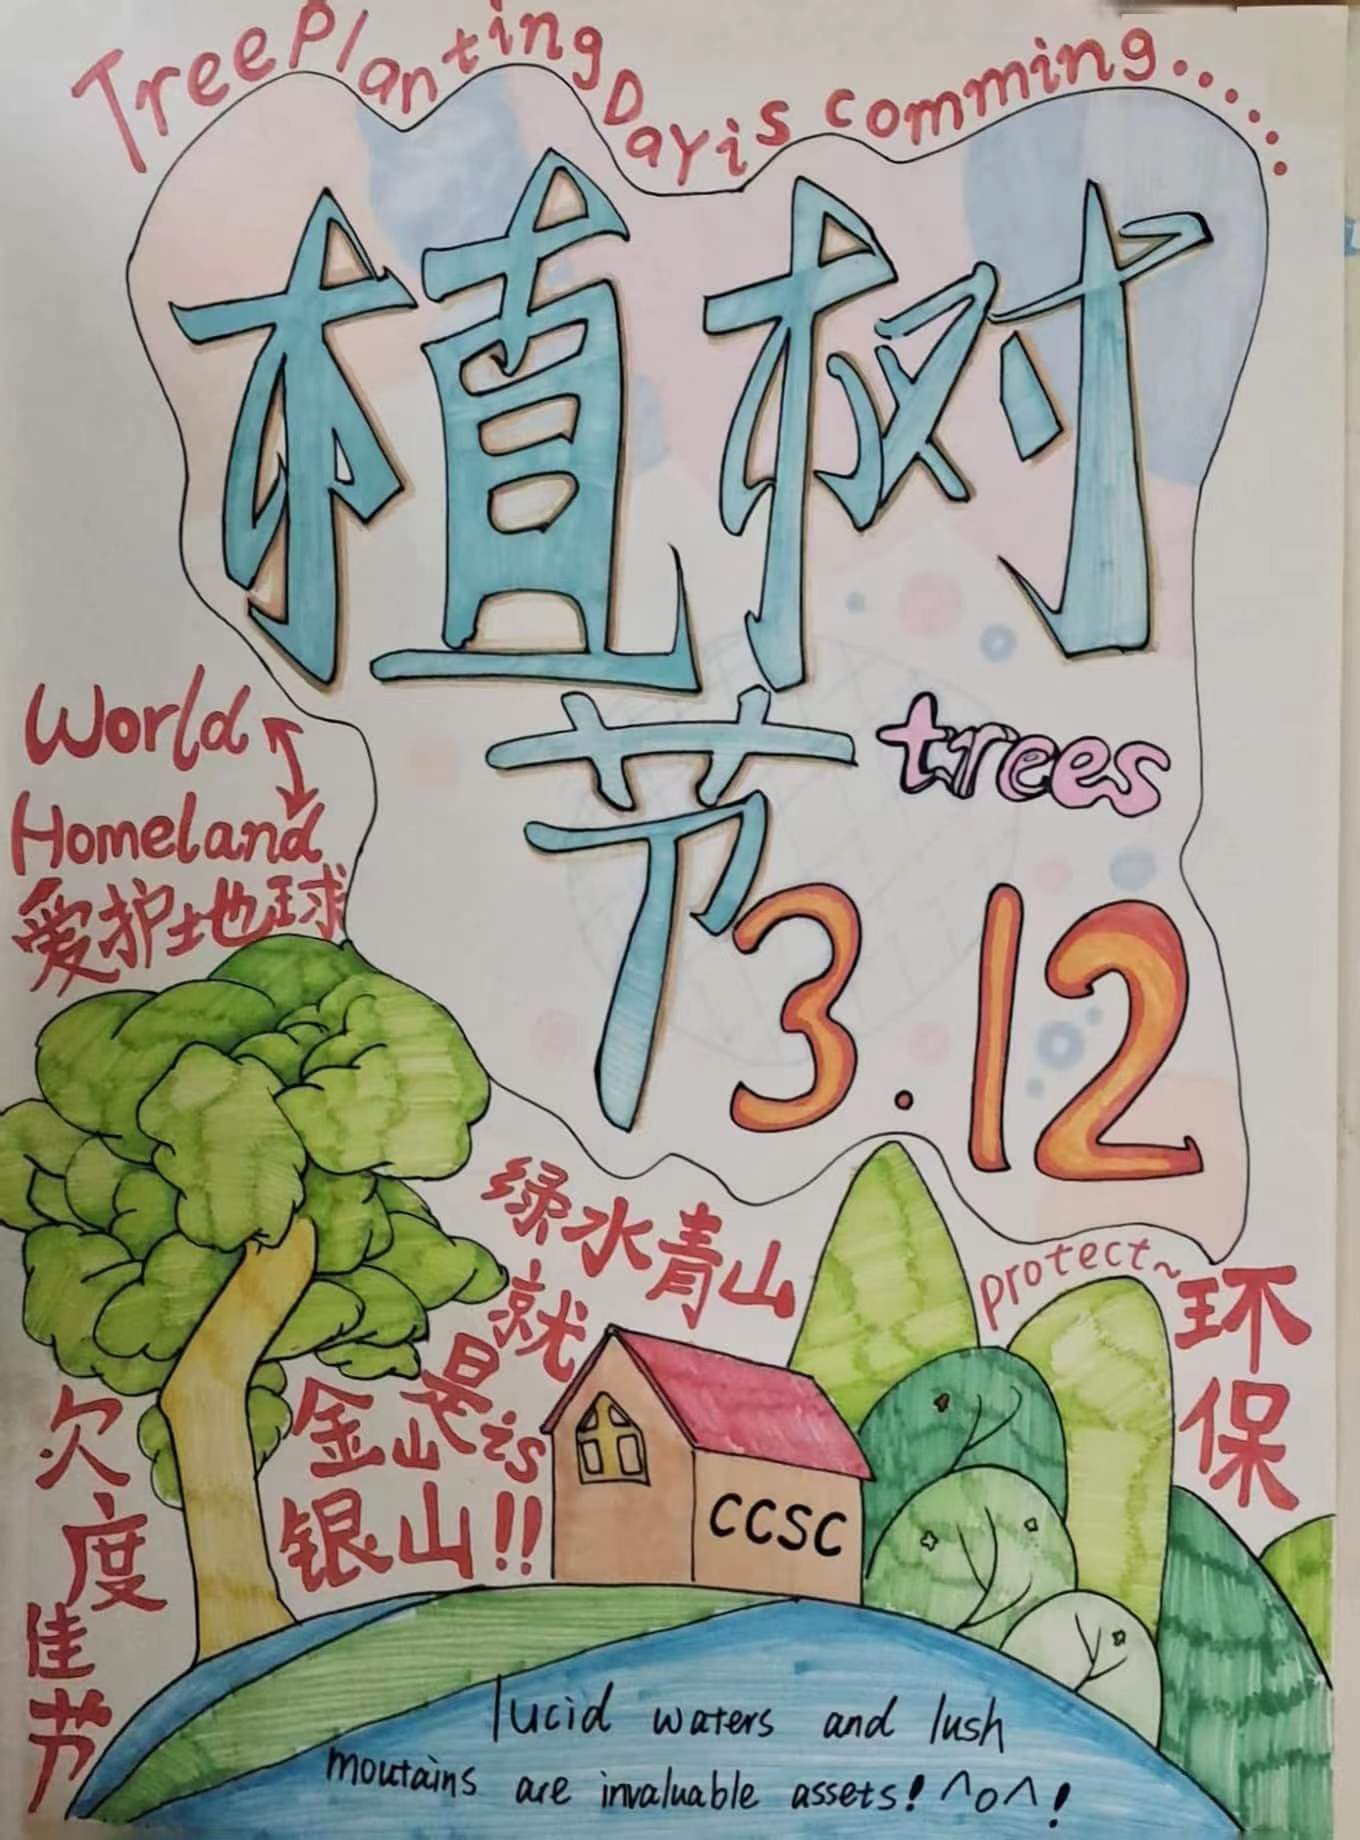 Tree Planting Day is comming......
植树
节
trees
3.12
World
Homeland
爱护地球
绿水青山
就
是is
金山
银山!!
protect~
环
保
欠
度
佳
节
CCSC
lucid waters and lush
moutains are invaluable assets! ^o^!